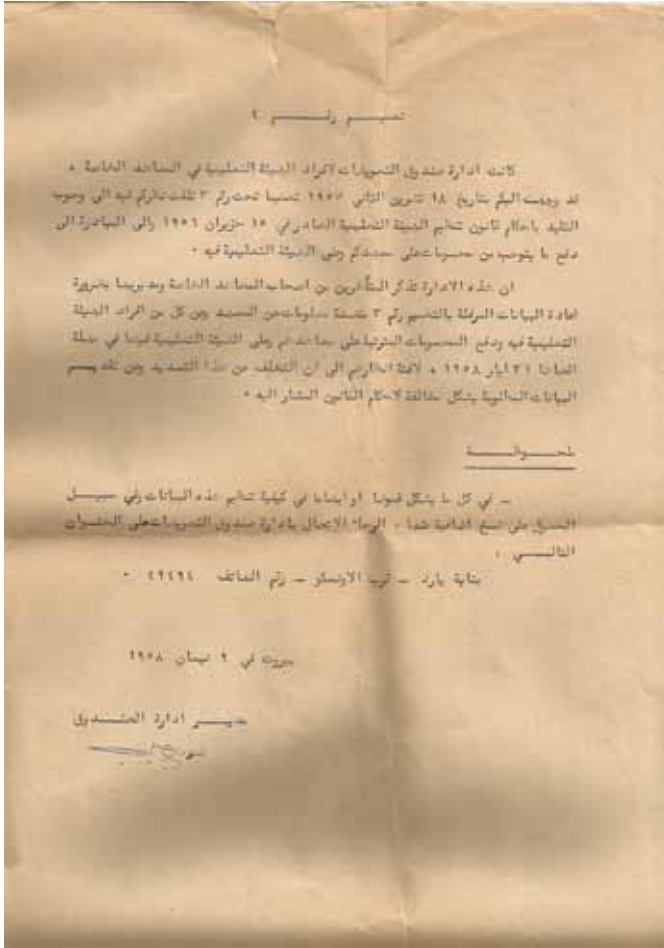 تعميم رقم ٩
كانت ادارة صندوق التعويضات لافراد الهيئة التعليمية في المعاهد الخاصة ٠
قد وجهت اليكم بتاريخ ١٨ تشرين الثاني ١٩٥٧ تعميما تحت رقم ٣ تلفت نظركم فيه الى وجوب
التقيد باحكام قانون تنظيم الهيئة التعليمية الصادر في ١٥ حزيران ١٩٥٦ والى المبادرة الى
دفع ما يتوجب من حسومات على معهدكم وعلى الهيئة التعليمية فيه ٠
ان هذه الادارة تذكر المتأخرين من اصحاب المعاهد الخاصة ومديريها بضرورة
اعادة البيانات المرفقة بالتعميم رقم ٣ متضمنة معلومات عن المعهد وعن كل من افراد الهيئة
التعليمية فيه ودفع المحسومات المترتبة على معاهدهم وعلى الهيئة التعليمية فيها في مهلة
اقصاها ٣١ ايار ١٩٥٨ ٠ لافتة انظارهم الى ان التخلف عن هذا التسديد وعن تقديم
البيانات المطلوبة يشكل مخالفة لاحكام القانون المشار اليه ٠
ملحوظة
ـ في كل ما يشكل غموضا او ايضاحا في كيفية تنظيم هذه البيانات وفي سبيل
الحصول على نسخ اضافية منها ٠ الرجاء الاتصال بادارة صندوق التعويضات على العنوان
التالي :
بناية يارد ـ قرب الاونسكو ـ رقم الهاتف ٤٩٤٩٤ ٠
بيروت في ٩ نيسان ١٩٥٨
مدير ادارة الصندوق